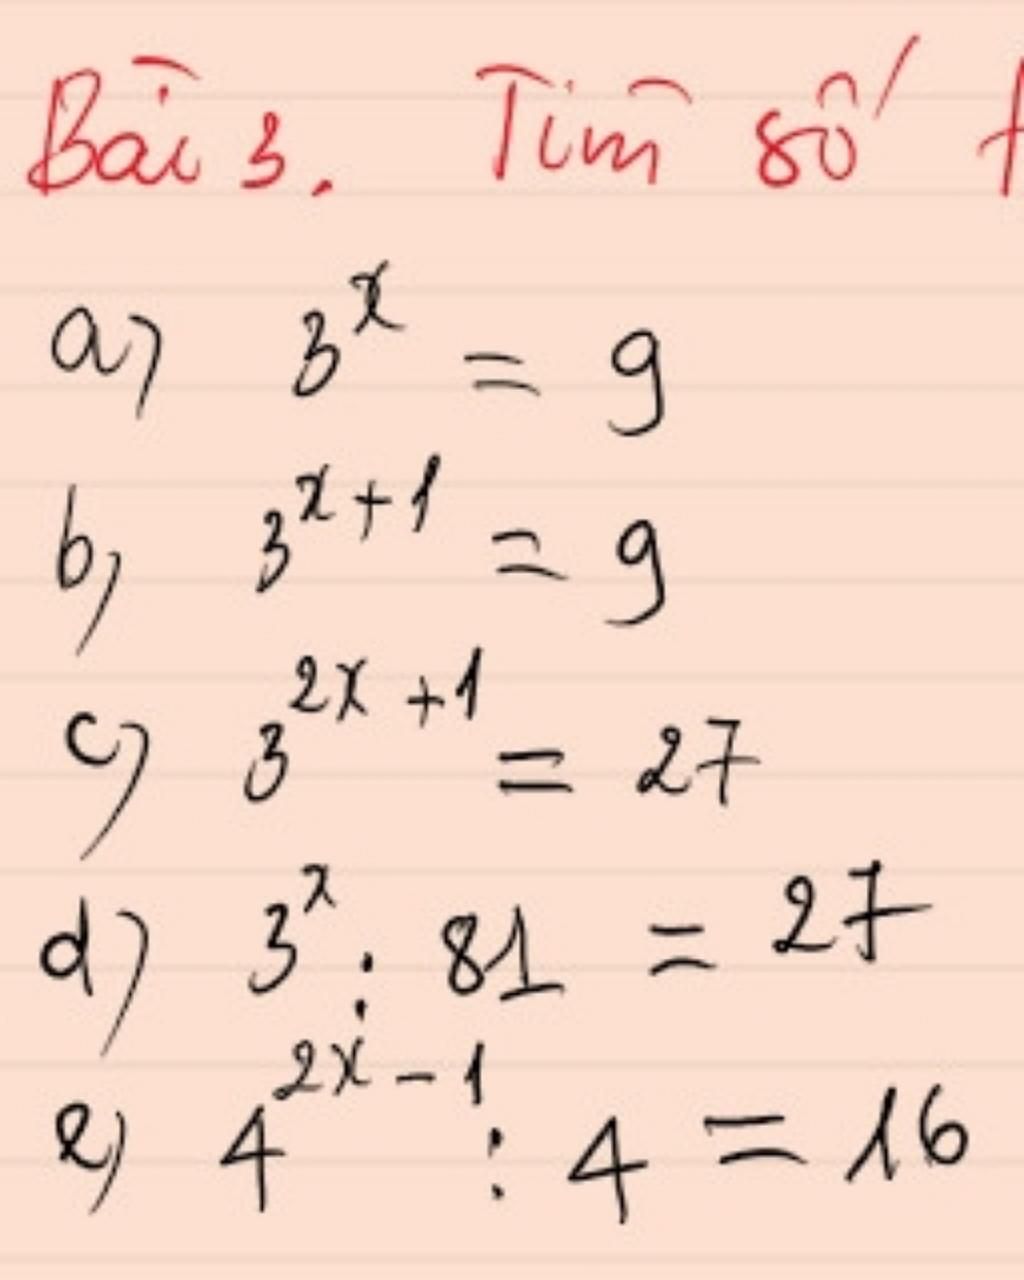 Bài 3. Tìm số
a) 3^x = 9
b) 3^{x+1} = 9
c) 3^{2x+1} = 27
d) 3^x : 81 = 27
e) 4^{2x-1} : 4 = 16